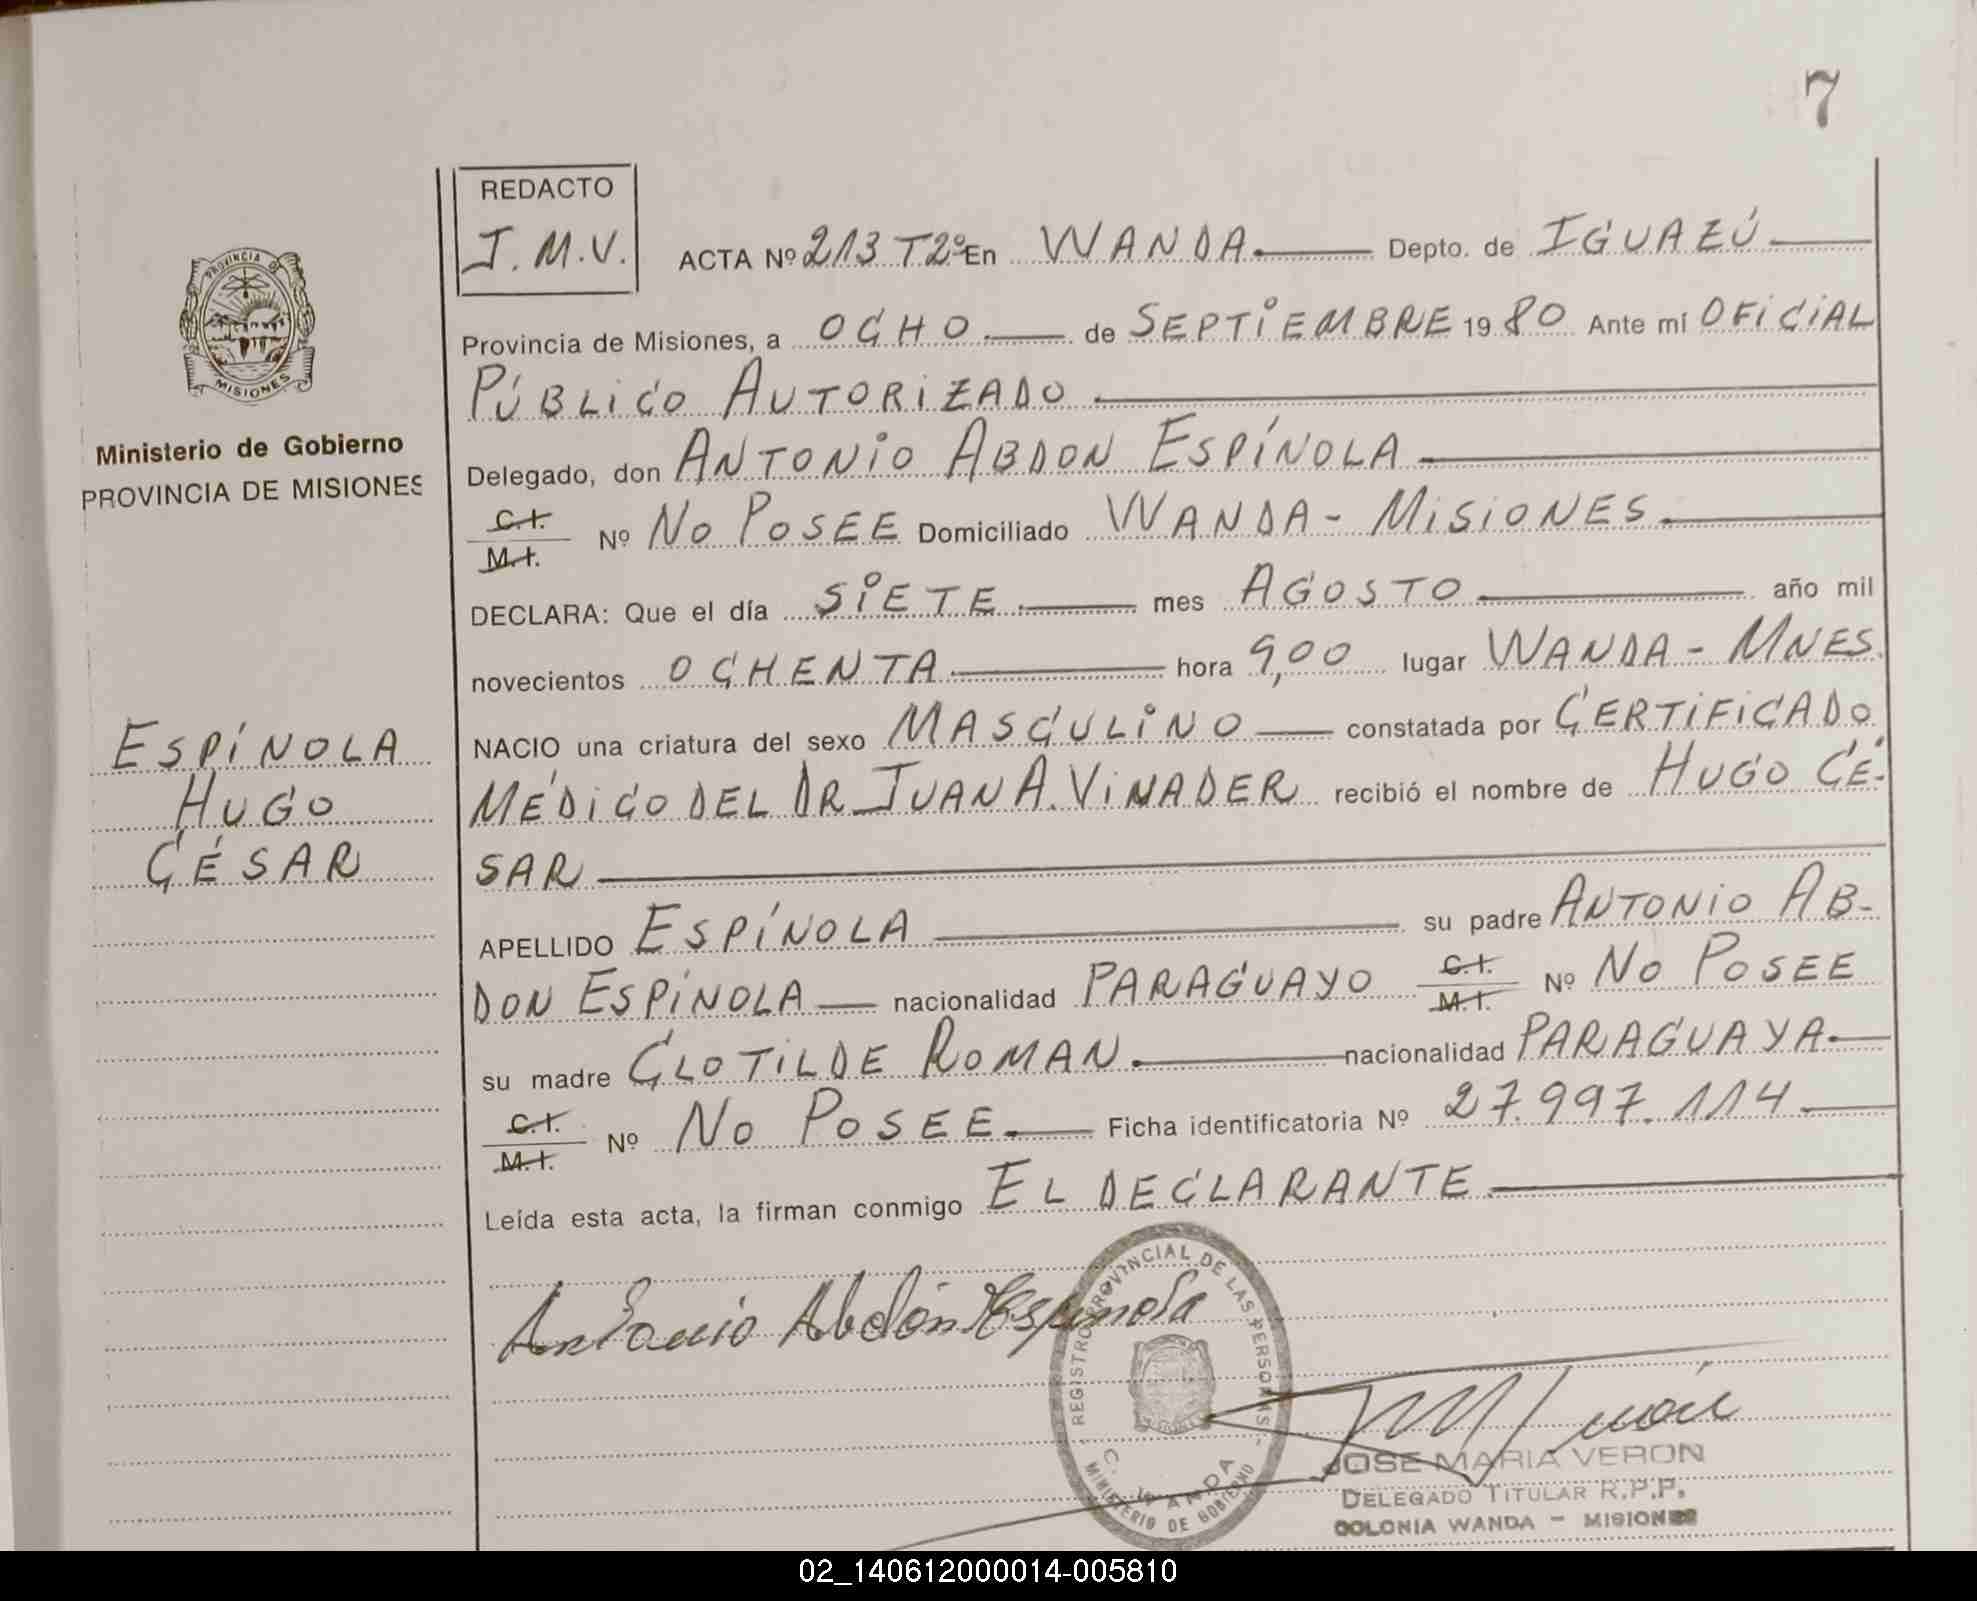 7
REDACTO
J.M.V.
ACTA Nº 213 T2º En WANDA Depto. de IGUAZÚ
Provincia de Misiones, a OCHO de SEPTIEMBRE 1980 Ante mí OFICIAL
PÚBLICO AUTORIZADO
Delegado, don ANTONIO ABDON ESPÍNOLA
C.I.
M.I. Nº NO POSEE Domiciliado WANDA - MISIONES.
DECLARA: Que el día SIETE mes AGOSTO año mil
novecientos OCHENTA hora 9,00 lugar WANDA - MNES.
NACIO una criatura del sexo MASCULINO constatada por CERTIFICADO
MÉDICO DEL DR. JUAN A. VINADER recibió el nombre de HUGO CÉ-
SAR
APELLIDO ESPÍNOLA su padre ANTONIO AB-
DON ESPÍNOLA nacionalidad PARAGUAYO C.I.
M.I. Nº NO POSEE
su madre CLOTILDE ROMAN. nacionalidad PARAGUAYA.
C.I.
M.I. Nº NO POSEE. Ficha identificatoria Nº 27.997.114
Leída esta acta, la firman conmigo EL DECLARANTE
Antonio Abdón Espinola
PROVINCIA DE
MISIONES
Ministerio de Gobierno
PROVINCIA DE MISIONES
ESPÍNOLA
HUGO
CÉSAR
REGISTRO PROVINCIAL DE LAS PERSONAS
C. WANDA
MINISTERIO DE GOBIERNO
JOSE MARIA VERON
DELEGADO TITULAR R.P.P.
COLONIA WANDA - MISIONES
02_140612000014-005810